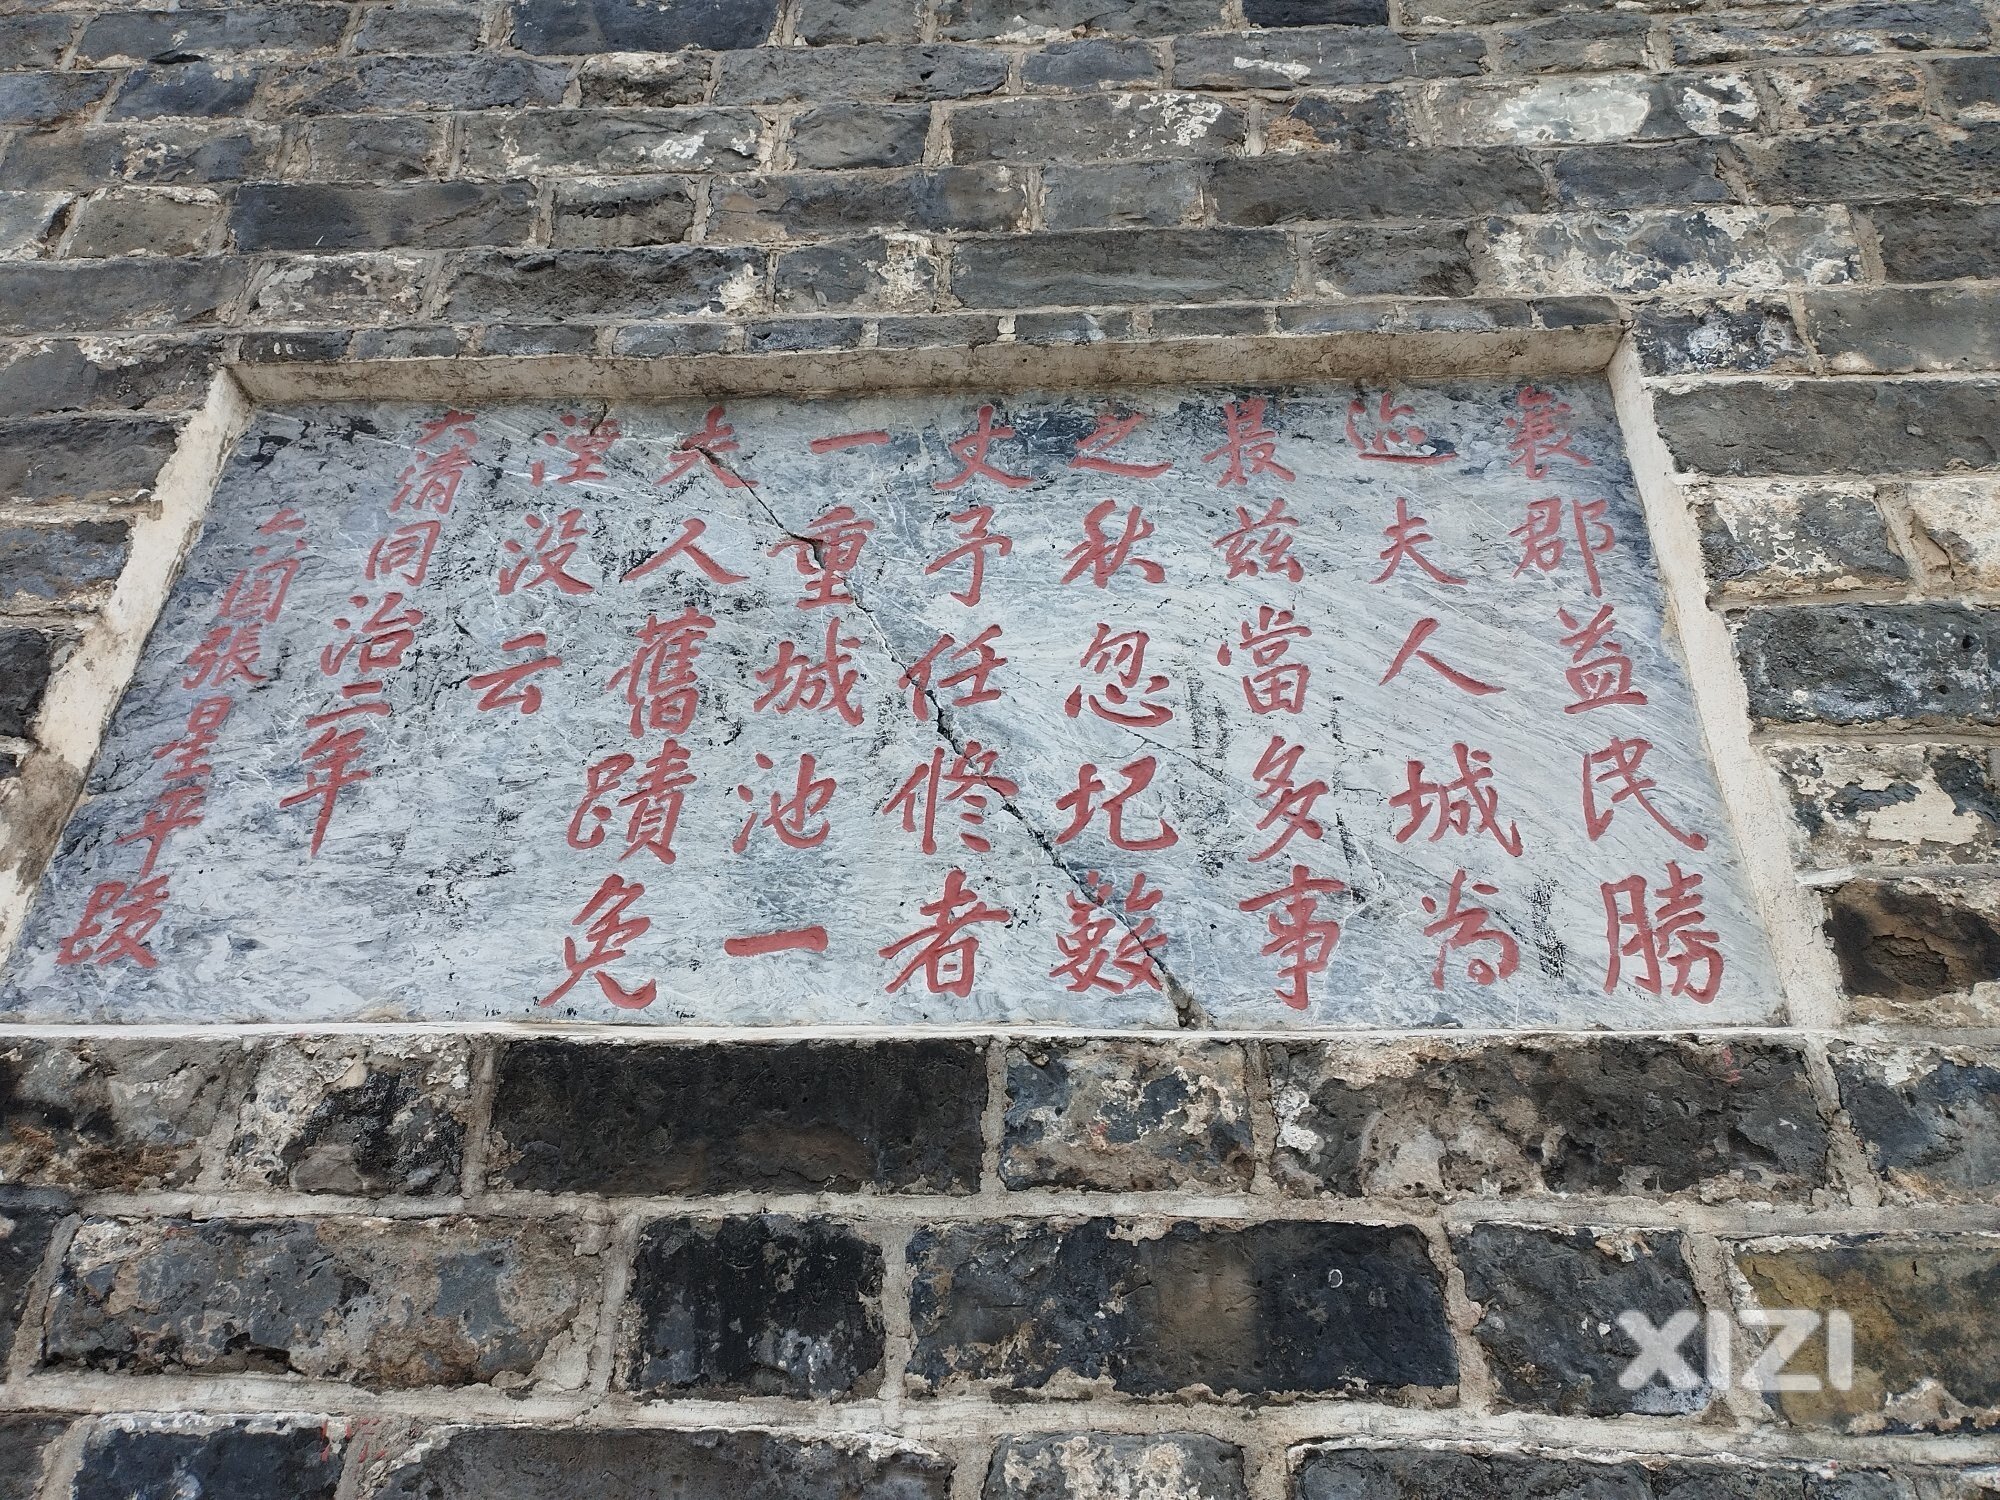 襄郡益民勝
迹夫人城為
最兹當多事
之秋忽圮數
丈予任修者
一重城池一
夫人舊蹟免
湮没云
大清同治二年
六圍張星平陵
XIZI